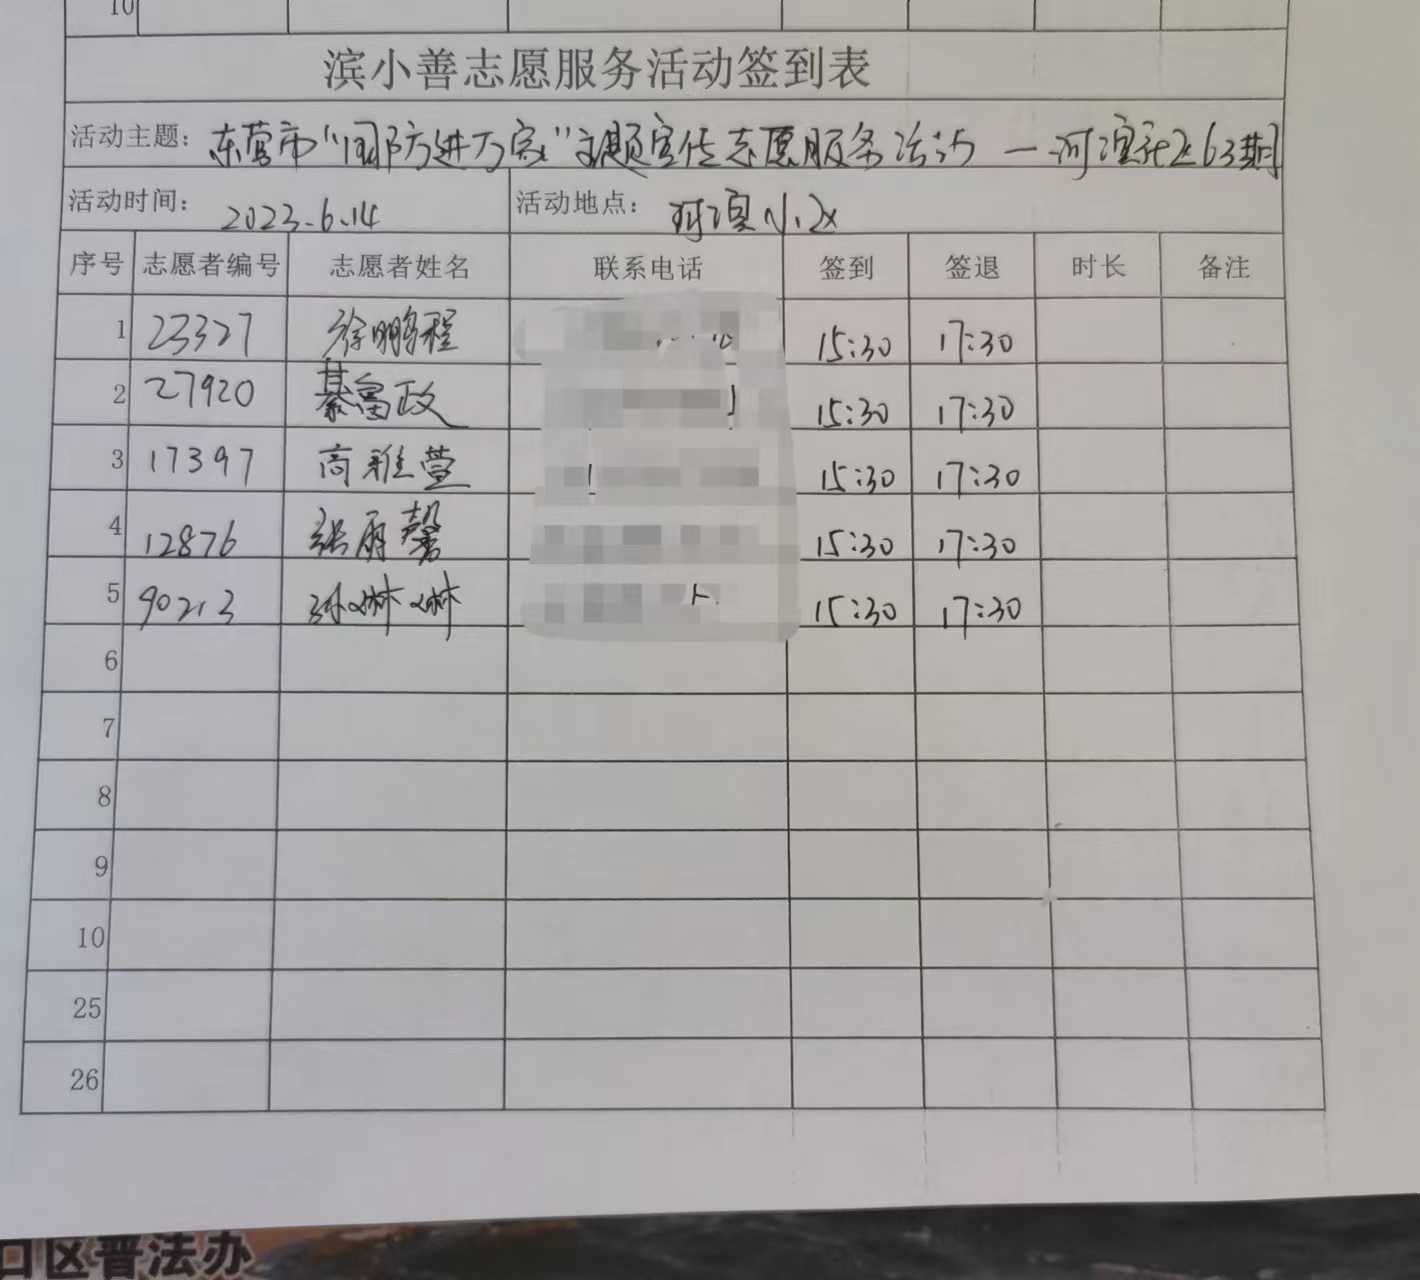 10
滨小善志愿服务活动签到表
活动主题: 东营市"国防进万家"主题宣传志愿服务活动 — 河滨社区63期
活动时间: 2023.6.14 活动地点: 河滨小区
序号 志愿者编号 志愿者姓名 联系电话 签到 签退 时长 备注
1 23327 徐鹏程 15:30 17:30
2 27920 綦鲁政 15:30 17:30
3 17397 高雅萱 15:30 17:30
4 12876 张雨馨 15:30 17:30
5 90213 孙淋淋 15:30 17:30
6
7
8
9
10
25
26
口区普法办